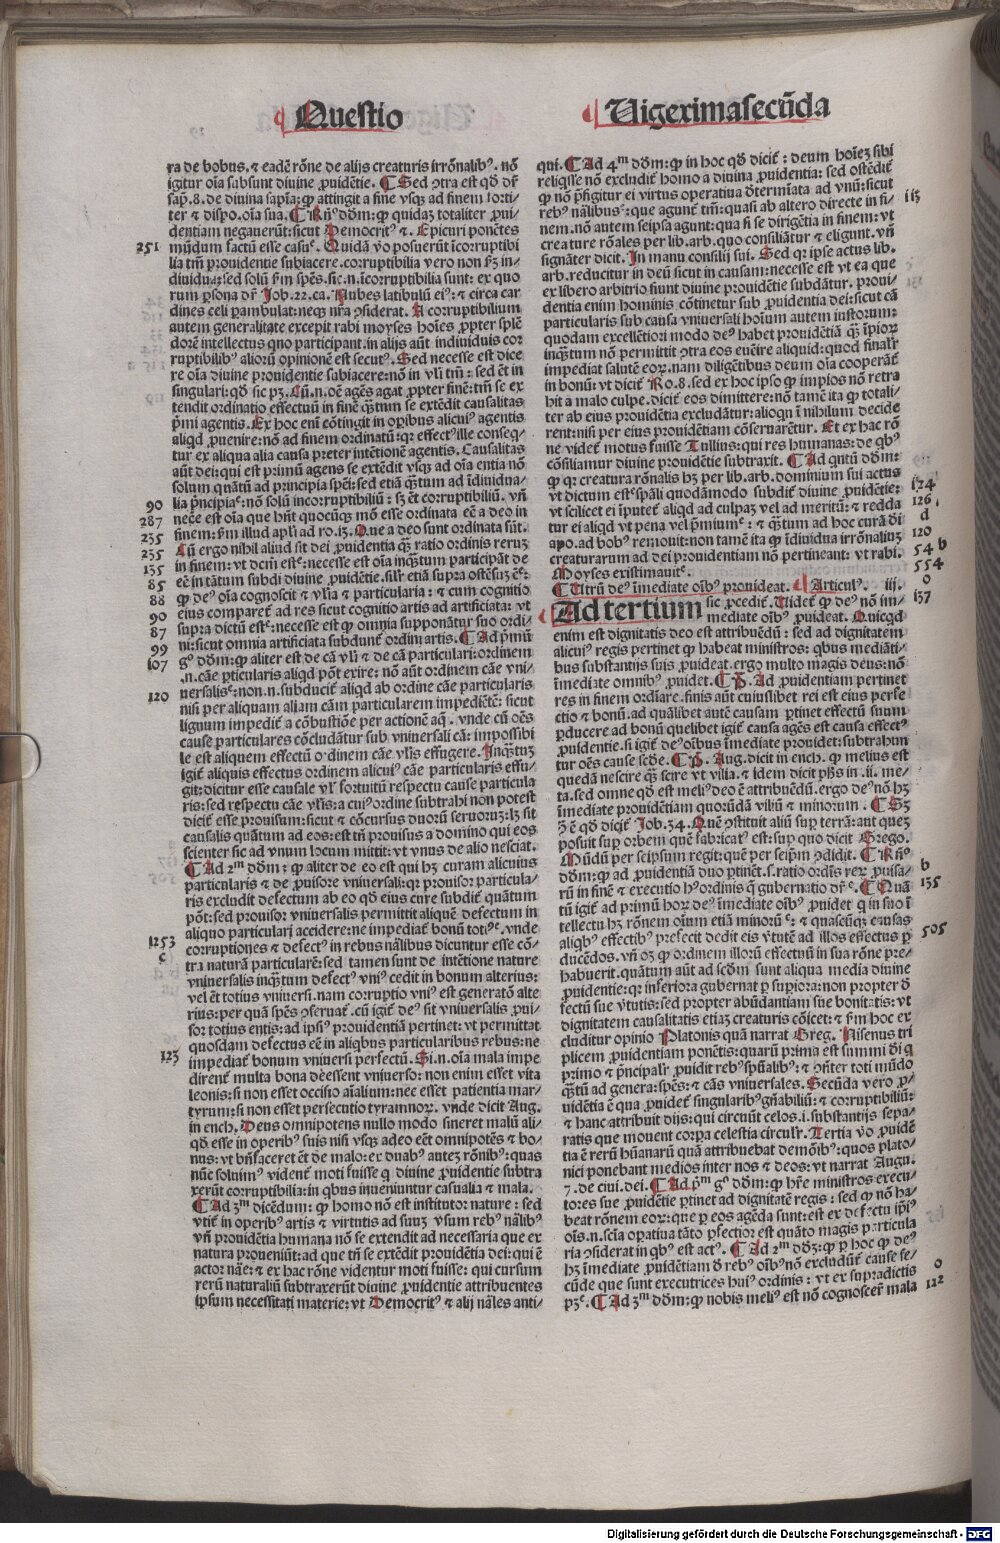 Questio
Uigexima secũda
ra de bobus. ⁊ eadẽ rõne de alijs creaturis irrõnalibꝰ. nõ
igitur oĩa subsunt diuine ꝓuidẽtie. ¶ Sed ꝯtra est qđ dr̃
sap̃. 8. de diuina sapĩa: ꝙ attingit a fine vsqꝫ ad finem forti-
ter ⁊ dispo. oĩa sua. ¶ Rñꝰ dđm: ꝙ quidaꝫ totaliter ꝓui-
dentiam negauerũt: sicut Democritꝰ ⁊. Epicuri ponẽtes
251
mũdum factũ esse casuᵉ. Quidã vo posuerũt ĩcorruptibi
lia tm̃ ꝓuidentie subiacere. corruptibilia vero non ẞm in-
diuidua: sed solũ ẞm spẽs. sic. n. ĩcorruptibilia sunt: ex quo
rum ꝑsona dr̃ Job. 22. ca. Nubes latibulũ eiꝰ: ⁊ circa car
dines celi ꝑambulat: neqꝫ nr̃a ꝯsiderat. A corruptibilium
autem generalitate excepit rabi moyses hoĩes ꝓpter splẽ
dorẽ intellectus quo participant. in alijs aũt indiuiduis cor
ruptibilibꝰ aliorũ opinionẽ est secutꝰ. Sed necesse est dice
re oĩa diuine prouidentie subiacere: nõ in vl̃i tm̃: sed ẽt in
singulari: qđ sic pꝫ. Cũ. n. oẽ agẽs agat ꝓpter finẽ: tm̃ se ex
tendit ordinatio effectuũ in finẽ qꝫtum se extẽdit causalitas
p̃mi agentis. Ex hoc eni cõtingit in oꝑibus alicuiꝰ agentis
aliqđ ꝓuenire: nõ ad finem ordinatũ: qꝛ effectꝰ ille conseq̃-
tur ex aliqua alia causa preter intẽtionẽ agentis. Causalitas
aũt dei: qui est primũ agens se extẽdit vsqꝫ ad oĩa entia nõ
solum quãtũ ad principia spẽi: sed etiã qꝫtum ad ĩdiuidua-
90
lia p̃ncipiaᵉ: nõ solũ incorruptibiliũ: sꝫ ẽt corruptibiliũ. vñ
287
nec̃e est oĩa que hñt quocũqꝫ mõ esse ordinata eẽ a deo in
235
finem: ẞm illud apl̃i ad ro. 13. Que a deo sunt ordinata sũt.
235
Cũ ergo nihil aliud sit dei ꝓuidentia qꝫ ratio ordinis reruꝫ
135
in finem: vt dcm̃ estᵉ: necesse est oĩa inqꝫtum participãt de
85
eẽ in tãtum subdi diuine ꝓuidẽtie. silr̃ etiã supra ostẽsuꝫ ẽᵉ:
88
ꝙ deꝰ oĩa cognoscit ⁊ vl̃ia ⁊ particularia: ⁊ cum cognitio
90
eius comparet᷑ ad res sicut cognitio artis ad artificiata: vt
87
supra dictũ estᵉ: necesse est ꝙ omnia supponãtur suo ordi-
99
ni: sicut omnia artificiata subdunt᷑ ordini artis. ¶ Ad p̃mũ
107
gꝰ dđm: ꝙ aliter est de cã vl̃i ⁊ de cã particulari: ordinem
.n. cãe ꝑticularis aliqđ põt exire: nõ aũt ordinem cãe vni-
120
uersalisᵉ: non. n. subducit᷑ aliqđ ab ordine cãe particularis
nisi per aliquam aliam cãm particularem impediẽtẽ: sicut
lignum impedit᷑ a cõbustiõe per actionẽ aq̃. vnde cũ oẽs
cause particulares cõcludãtur sub vniuersali cã: impossibi
le est aliquem effectũ ordinem cãe vl̃is effugere. Inqꝫtuꝫ
igit᷑ aliquis effectus ordinem alicuiꝰ cãe particularis effu-
git: dicitur esse casuale vl̃ fortuitũ respectu cause particula
ris: sed respectu cãe vl̃is: a cuiꝰ ordine subtrahi non potest
dicit᷑ esse prouisum: sicut ⁊ cõcursus duorũ seruoruꝫ: lꝫ sit
causalis quãtum ad eos: est tñ prouisus a domino qui eos
scienter sic ad vnum locum mittit: vt vnus de alio nesciat.
¶ Ad 2ᵐ dđm: ꝙ aliter de eo est qui hꝫ curam alicuius
particularis ⁊ de ꝓuisore vniuersali: qꝛ prouisor particula-
ris excludit defectum ab eo qđ eius cure subdit᷑ quãtum
põt: sed prouisor vniuersalis permittit aliquẽ defectum in
aliquo particulari accidere: ne impediat᷑ bonũ totiꝰᵉ. vnde
1253
corruptiones ⁊ defectꝰ in rebus nãlibus dicuntur esse cõ-
c
tra naturã particularẽ: sed tamen sunt de intẽtione nature
vniuersalis inqꝫtum defectꝰ vniꝰ cedit in bonum alterius:
vel ẽt totius vniuersi. nam corruptio vniꝰ est generatõ alte
rius: per quã spẽs ꝯseruat᷑. cũ igit᷑ deꝰ sit vniuersalis ꝓui-
sor totius entis: ad ipsiꝰ prouidentiã pertinet: vt permittat
quosdam defectus eẽ in aliqbus particularibus rebus: ne
123
impediat᷑ bonum vniuersi perfectũ. Si. n. oĩa mala impe
dirent᷑ multa bona deẽssent vniuerso: non enim esset vita
leonis: si non esset occisio aĩalium: nec esset patientia mar-
tyrum: si non esset persecutio tyramnoꝝ. vnde dicit Aug.
in ench. Deus omnipotens nullo modo sineret malũ ali-
qđ esse in operibꝰ suis nisi vsqꝫ adeo eẽt omnipotẽs ⁊ bo-
nus: vt bñ faceret ẽt de malo: ex duabꝰ auteꝫ rõnibꝰ: quas
nũc soluimꝰ vident᷑ moti fuisse q̃ diuine ꝓuidentie subtra
xerũt corruptibilia: in qbus inueniuntur casualia ⁊ mala.
¶ Ad 3ᵐ dicẽdum: ꝙ homo nõ est institutor nature: sed
vtit᷑ in operibꝰ artis ⁊ virtutis ad suuꝫ vsum rebꝰ nãlibꝰ
vñ prouidentia humana nõ se extendit ad necessaria que ex
natura proueniũt: ad que tñ se extẽdit prouidẽtia dei: qui ẽ
actor nãe: ⁊ ex hac rõne videntur moti fuisse: qui cursum
rerũ naturaliũ subtraxerũt diuine ꝓuidentie attribuentes
ipsum necessitati materie: vt Democritꝰ ⁊ alij nãles anti-
qui. ¶ Ad 4ᵐ dđm: ꝙ in hoc qđ dicit᷑: deum hoĩeꝫ sibi
reliq̃sse nõ excludit᷑ homo a diuina ꝓuidentia: sed ostẽdit᷑
ꝙ nõ p̃figitur ei virtus operatiua đtermĩata ad vnũ: sicut
rebꝰ nãlibusᵉ: que agunt᷑ tm̃: quasi ab altero directe in fi-
nem. nõ autem seipsa agunt: qua si se dirigẽtia in finem: vt
creature rõales per lib. arb. quo consiliãtur ⁊ eligunt. vñ
signãter dicit. In manu consilij sui. Sed qꝛ ipse actus lib.
arb. reducitur in deũ sicut in causam: necesse est vt ea que
ex libero arbitrio fiunt diuine prouidẽtie subdãtur. proui-
dentia enim hominis cõtinetur sub ꝓuidentia dei: sicut cã
particularis sub causa vniuersali hoĩum autem iustorum:
quodam excellẽtiori modo deꝰ habet prouidẽtiã qꝫ ĩpioꝝ
inqꝫtum nõ permittit ꝯtra eos euẽire aliquid: quod finalr̃
impediat salutẽ eoꝝ. nam diligẽtibus deum oĩa cooperãt᷑
in bonũ: vt dicit᷑ Ro. 8. sed ex hoc ipso ꝙ impios nõ retra
hit a malo culpe. dicit᷑ eos dimittere: nõ tamẽ ita ꝙ totali-
ter ab eius prouidẽtia excludãtur: alioqn ĩ nihilum decide
rent: nisi per eius prouidẽtiam cõseruarẽtur. Et ex hac rõ
ne videt᷑ motus fuisse Tullius: qui res humanas: de qbꝰ
cõsiliamur diuine prouidẽtie subtraxit. ¶ Ad quĩtũ dđm:
ꝙ qꝛ creatura rõnalis hꝫ per lib. arb. dominium sui actus
124
vt dictum estᵉ spãli quodãmodo subdit᷑ diuine ꝓuidẽtie:
126
vt scilicet ei ĩputet᷑ aliqđ ad culpaꝫ vel ad meritũ: ⁊ redda
d
tur ei aliqđ vt pena vel p̃miumᵉ: ⁊ qꝫtum ad hoc curã di
120
apo. ad bobꝰ remouit: non tamẽ ita ꝙ ĩdiuidua irrõnaliuꝫ
54 b
creaturarum ad dei prouidentiam nõ pertineant: vt rabi.
554
Moyses existimauitᵉ.
¶ Utrũ deꝰ ĩmediate oĩbꝰ prouideat. ¶ Articulꝰ. iii.
o
137
Ad tertium sic ꝓcedit᷑. Uidet᷑ ꝙ deꝰ nõ im-
mediate oĩbꝰ ꝓuideat. Quicqđ
enim est dignitatis deo est attribuẽdũ: sed ad dignitatem
alicuiꝰ regis pertinet ꝙ habeat ministros: qbus mediãti-
bus substantijs suis ꝓuideat. ergo multo magis deus: nõ
ĩmediate omnibꝰ ꝓuidet. ¶ P̃. Ad ꝓuidentiam pertinet
res in finem ordĩare. finis aũt cuiuslibet rei est eius perfe
ctio ⁊ bonũ. ad quãlibet autẽ causam ꝑtinet effectũ suum
ꝑducere ad bonũ quelibet igit᷑ causa agẽs est causa effectꝰ
ꝓuidentie. si igit᷑ deꝰ oĩbus ĩmediate prouidet: subtrahun
tur oẽs cause scđe. ¶ P̃. Aug. dicit in ench. ꝙ melius est
quedã nescire qꝫ scire vt vilia. ⁊ idem dicit ph̃s in. ii. me-
ta. sed omne qđ est meliꝰ deo ẽ attribuẽdũ. ergo deꝰ nõ hꝫ
ĩmediate prouidẽtiam quorũdã viliũ ⁊ minorum. ¶ Sꝫ
ꝯ̃ ẽ qđ dicit᷑ Job. 34. Quẽ ꝯstituit aliũ suꝑ terrã: aut queꝫ
posuit suꝑ orbem quẽ fabricatꝰ est: suꝑ quo dicit Grego.
Mũdũ per seipsum regit: quẽ per seip̃m ꝯdidit. ¶ Rñꝰ
b
dđm: ꝙ ad ꝓuidentiã duo ꝑtinẽt. s. ratio ordĩs reꝝ ꝓuisa-
135
rũ in finẽ ⁊ executio hꝰ ordinis q̃ gubernatio dr̃ᵉ. ¶ Quã
tũ igit᷑ ad primũ hoꝝ deꝰ ĩmediate oĩbꝰ ꝓuidet q̃ in suo ĩ
tellectu hꝫ rõnem oĩum etiã minorũᵉ: ⁊ quascũqꝫ causas
505
aliqbꝰ effectibꝰ prefecit dedit eis v̓tutẽ ad illos effectus ꝑ
ducẽdos. vñ oꝫ ꝙ ordinem illorũ effectuũ in sua rõne pre-
habuerit. quãtum aũt ad scđm sunt aliqua media diuine
ꝓuidentie: qꝛ inferiora gubernat ꝑ suꝑiora: non propter đ
fectũ sue v̓tutis: sed propter abũdantiam sue bonitatis: vt
dignitatem causalitatis etiaꝫ creaturis cõicet: ⁊ ẞm hoc ex
cluditur opinio Platonis quã narrat Greg. Nisenus tri
plicem ꝓuidentiam ponẽtis: quarũ prima est summi di q̃
primo ⁊ p̃ncipalr̃ ꝓuidit rebꝰ sp̃ualibꝰ: ⁊ ꝯñter toti mũdo
qꝫtũ ad genera: spẽs: ⁊ cãs vniuersales. Secũda vero ꝓ-
uidẽtia ẽ qua ꝓuidet᷑ singularibꝰ gñabiliũ: ⁊ corruptibiliũ:
⁊ hanc attribuit dijs: qui circuũt celos. i. substantijs sepa-
ratis que mouent corꝑa celestia circulr̃. Tertia vo ꝓuidẽ
tia ẽ rerũ hũanarũ quã attribuebat demõibꝰ: quos plato-
nici ponebant medios inter nos ⁊ deos: vt narrat Augu.
7. de ciui. dei. ¶ Ad p̃ᵐ gꝰ dđm: ꝙ hr̃e ministros execu-
tores sue ꝓuidẽtie ꝑtinet ad dignitatẽ regis: sed ꝙ nõ ha-
beat rõnem eoꝝ: que ꝑ eos agẽda sunt: est ex defectu ip̃iꝰ
oĩs. n. scĩa oꝑatiua tãto ꝑfectior est quãto magis ꝑticula
ria ꝯsiderat in qbꝰ est actꝰ. ¶ Ad 2ᵐ dđꝫ: ꝙ ꝑ hoc ꝙ deꝰ
hꝫ ĩmediate ꝓuidẽtiam đ rebꝰ oĩbꝰ nõ excludũt᷑ cause se-
o
cũde que sunt executrices huiꝰ ordinis: vt ex supradictis
122
pꝫᵉ. ¶ Ad 3ᵐ dđm: ꝙ nobis meliꝰ est nõ cognoscer̃ mala
Digitalisierung gefördert durch die Deutsche Forschungsgemeinschaft - DFG